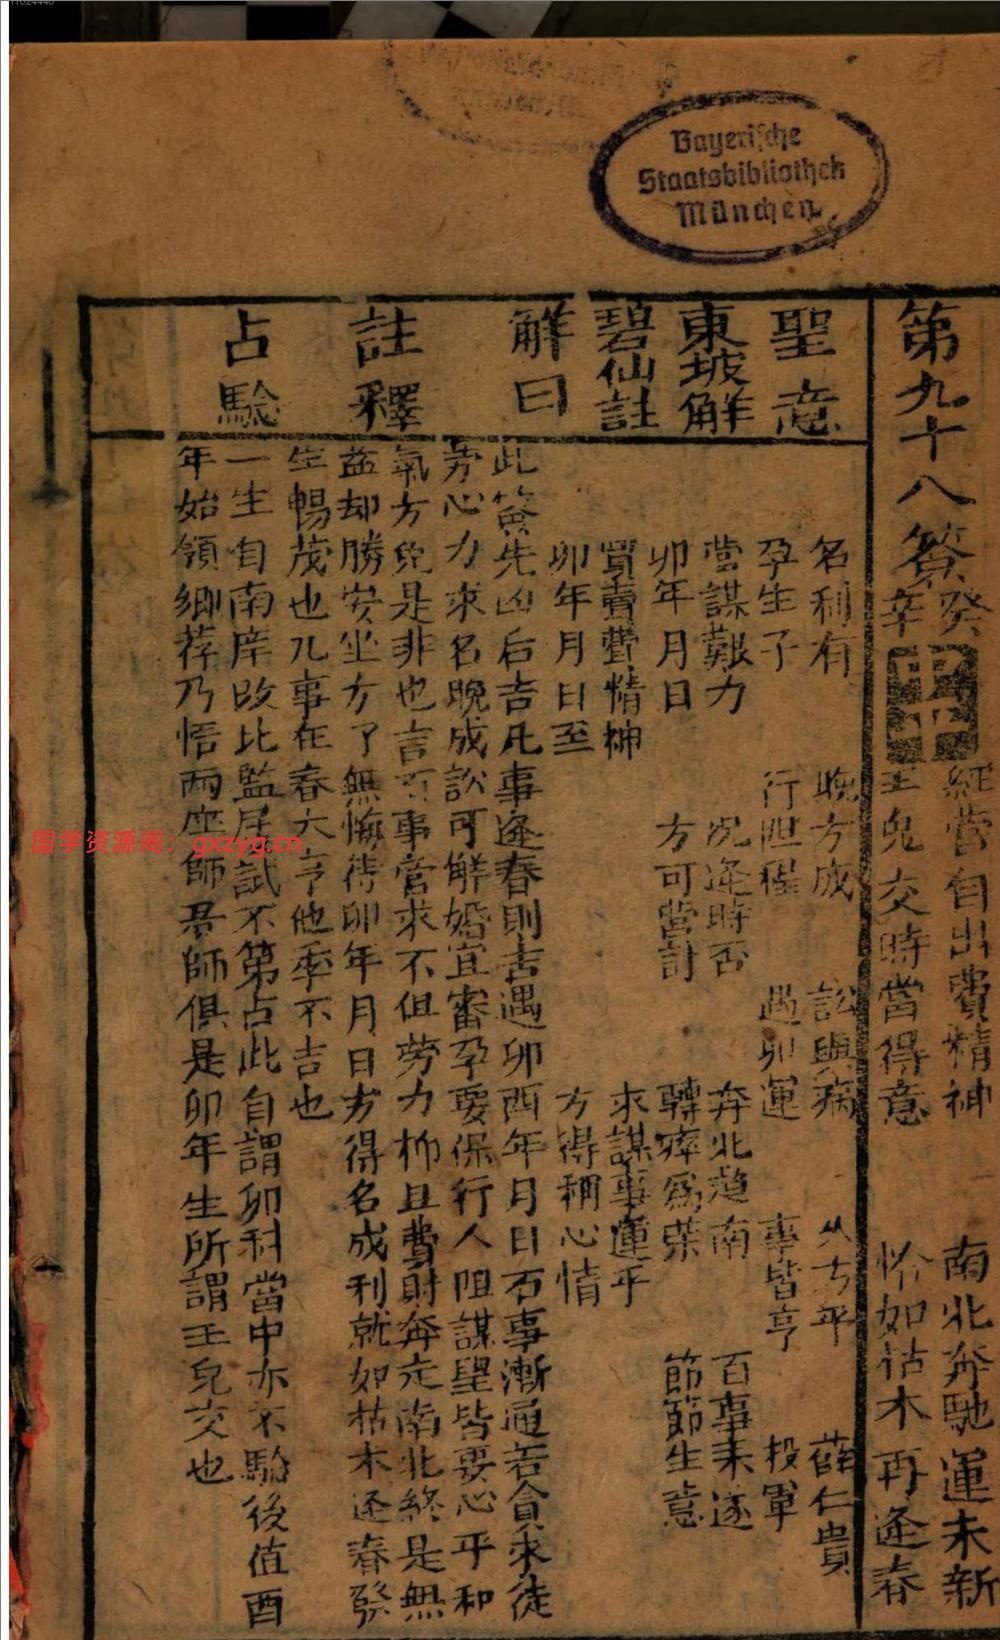 11024440
Bayerische
Staatsbibliothek
München
第九十八簽
癸辛
中平
經營自出費精神　南北奔馳運未新
玉兔交時當得意　恰如枯木再逢春
聖意
名利有　晚方成　訟與病　久方平　薛仁貴
孕生子　行阻程　遇卯運　事皆亨　投軍
東坡解
營謀艱力　況逢時否　奔北趨南　百事未遂
卯年月日　方可營計　轉瘁為榮　節節生意
碧仙註
買賣費情神　求謀事運乎
卯年月日至　方得稱心情
解曰
此簽先凶后吉凡事逢春則吉遇卯酉年月日百事漸通若貪求徒
勞心力求名晚成訟可解婚宜審孕要保行人阻謀望皆要心平和
氣方免是非也言百事營求不但勞力抑且費財奔走南北終是無
註釋
益却勝安坐方了無悔待卯年月日方得名成利就如枯木逐春發
生暢茂也凡事在春大亨他季不吉也
占驗
一生自南庠改北監屢試不第占此自謂卯科當中亦不驗後值酉
年始領鄉荐乃悟兩座師君師俱是卯年生所謂玉兔交也
国学资源阁：gxzyg.cn